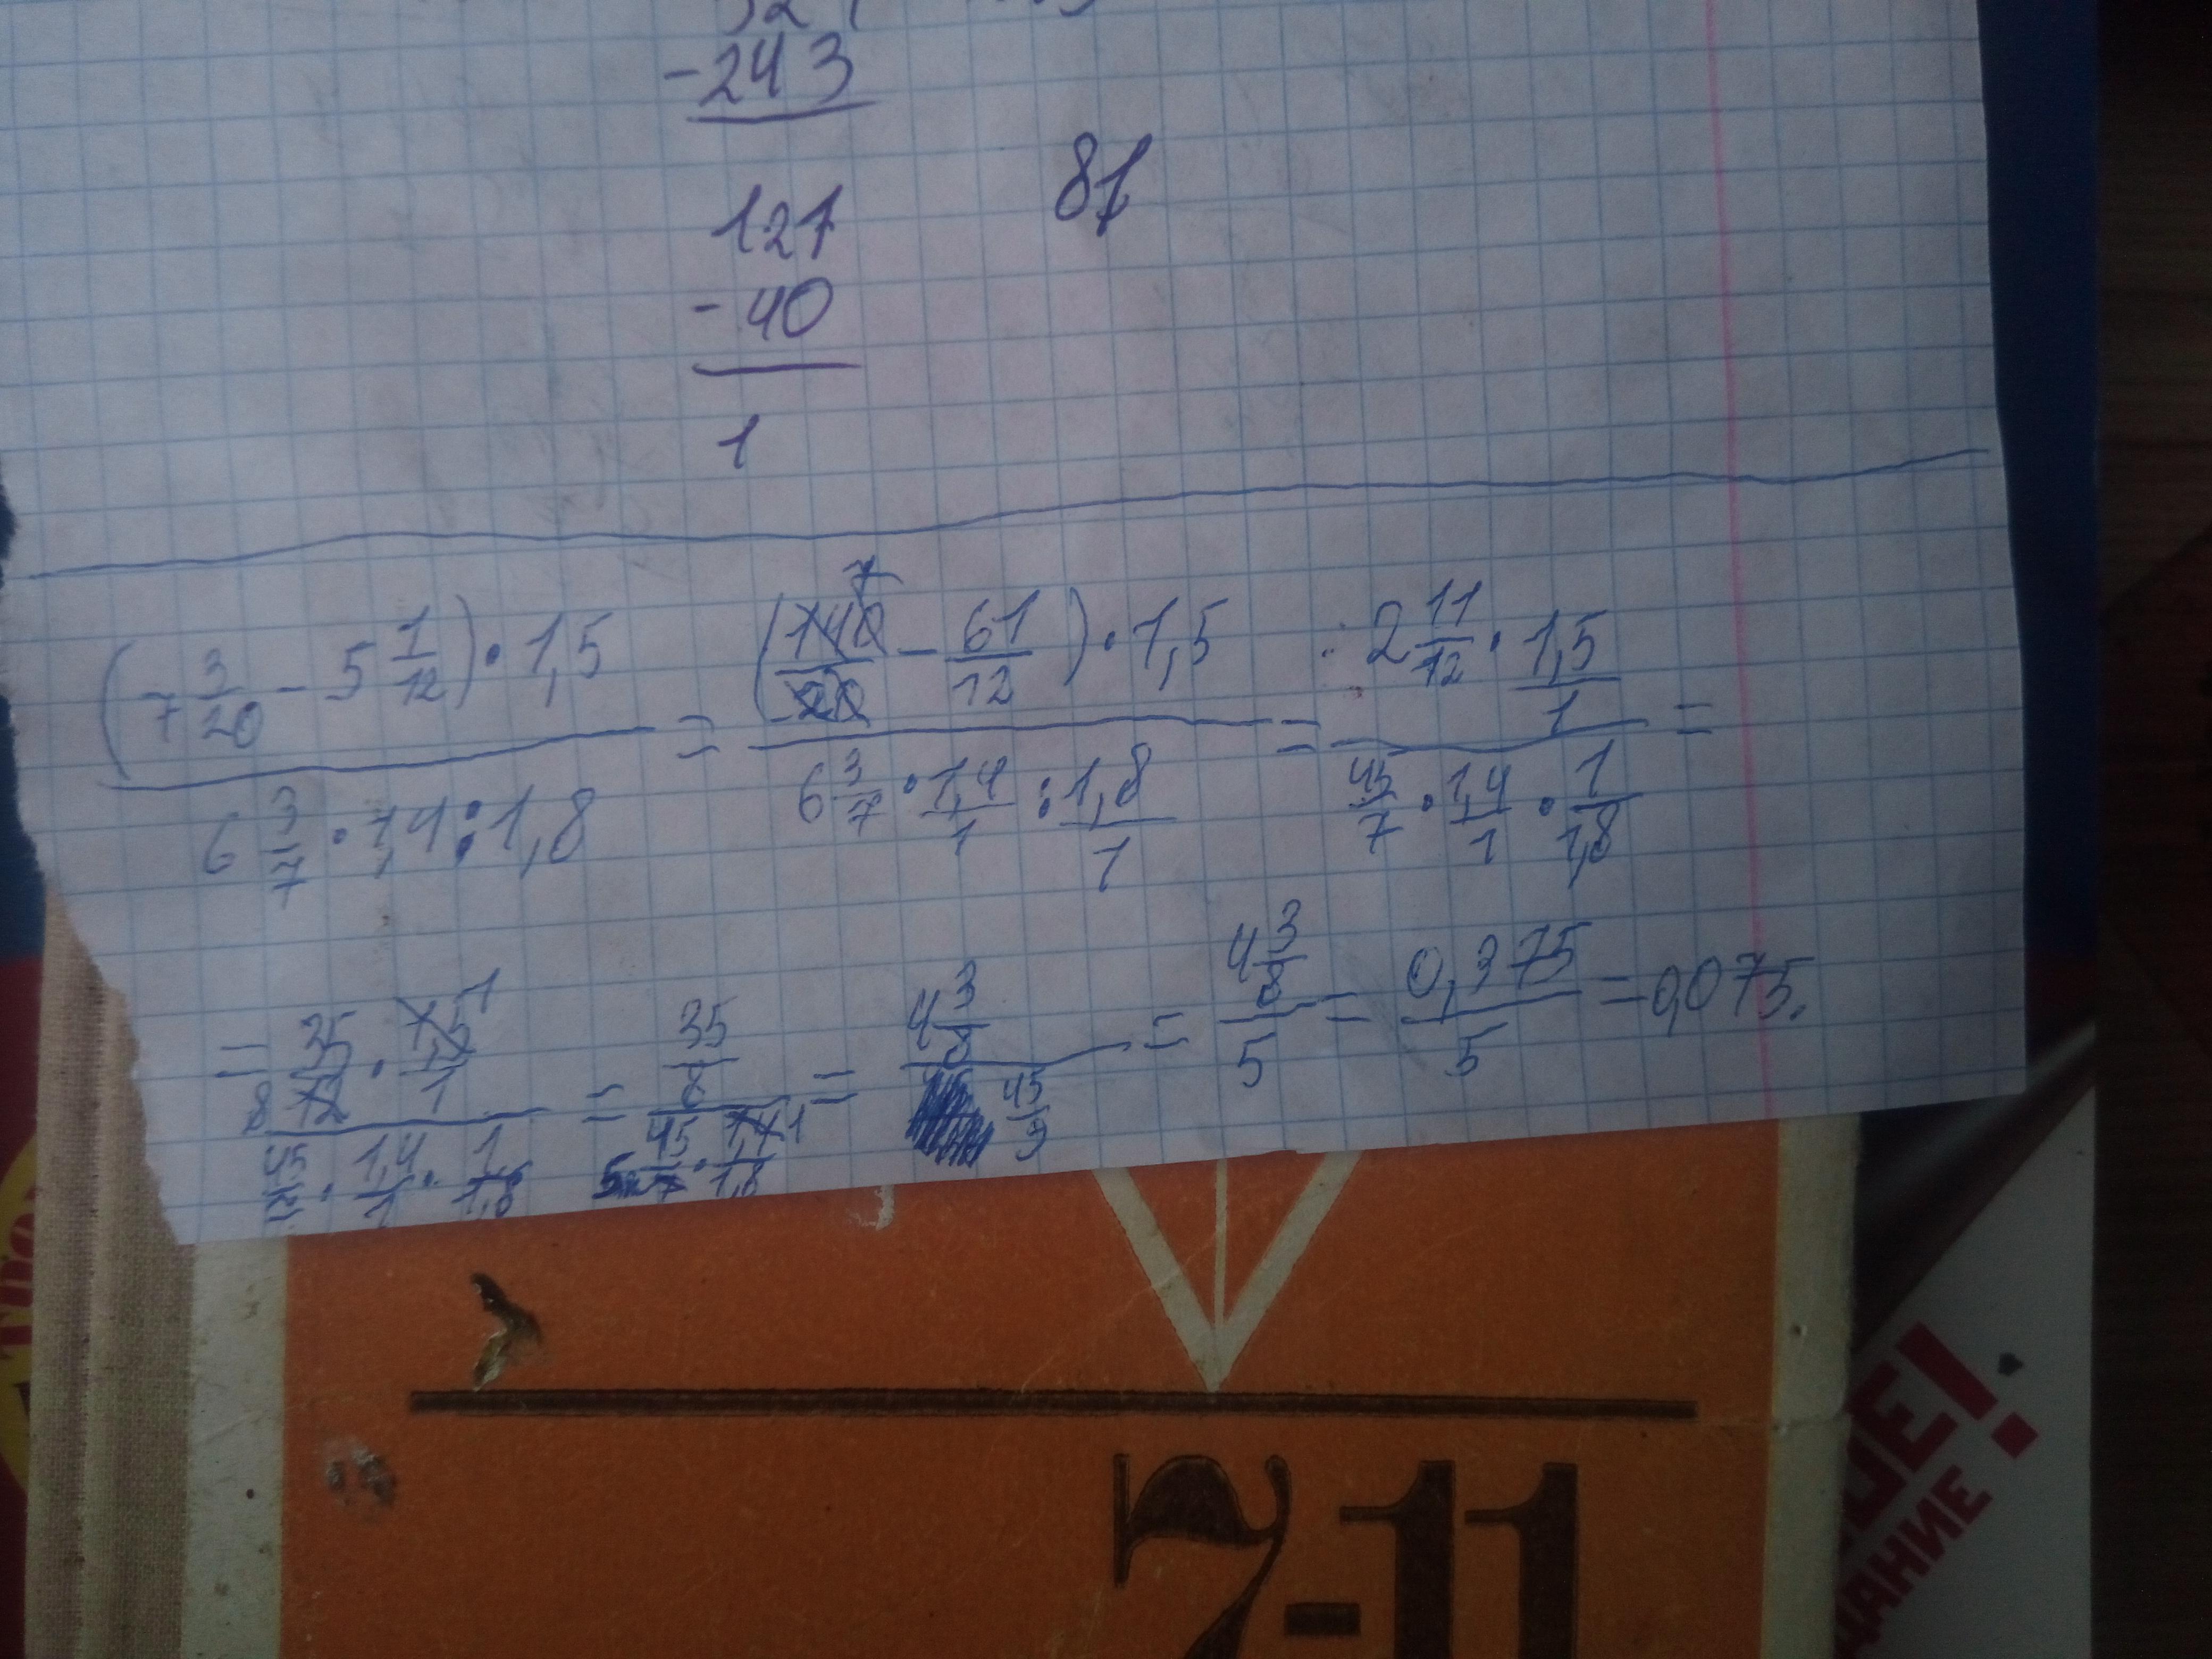 -243
127
81
-40
1
(7 3/20 - 5 1/12) · 1,5 / 6 3/7 · 1,4 : 1,8 = (140/20 - 61/12) · 1,5 / 6 3/7 · 1,4/1 : 1,8/1 = 2 11/12 · 1,5/1 / 45/7 · 1,4/1 · 1/1,8 =
= 35/12 · 1,5/1 / 45/7 · 1,4/1 · 1/1,8 = 35/8 / 45/7 · 1,4/1,8 = 4 3/8 / 45/9 = 4 3/8 / 5 = 0,375 / 5 = 0,075.
7-11
ДАНИЕ